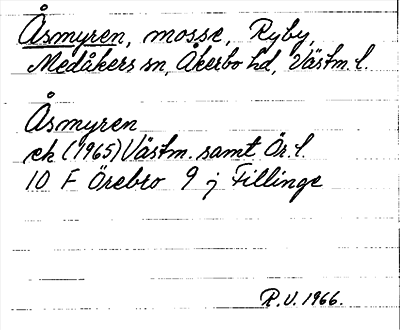 Åsmyren, mosse, Ryby,
Medåkers sn, Åkerbo hd, Västm. l.
Åsmyren
ek (1965) Västm. samt Ör. l.
10 F Örebro 9 j Fillinge
R.U. 1966.